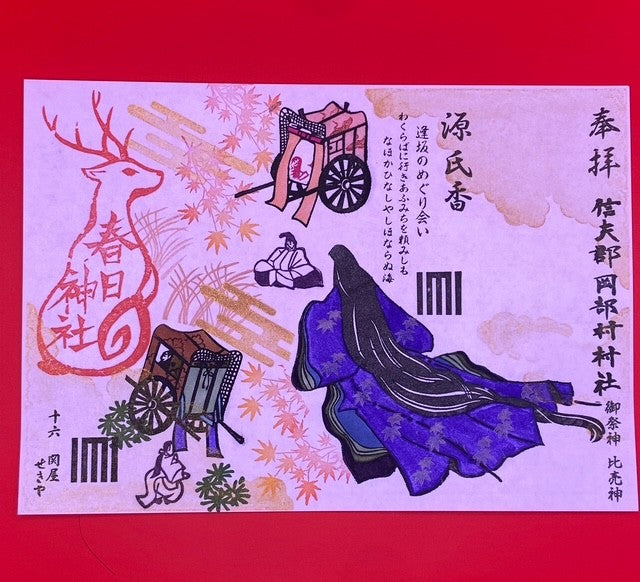 奉拝
信夫郡岡部村村社
御祭神 比売神
源氏香
逢坂のめぐり会い
わくらばに行きあふみちを頼みしも
なほかひなしやしほならぬ海
春日
神社
十六 関屋
せきや